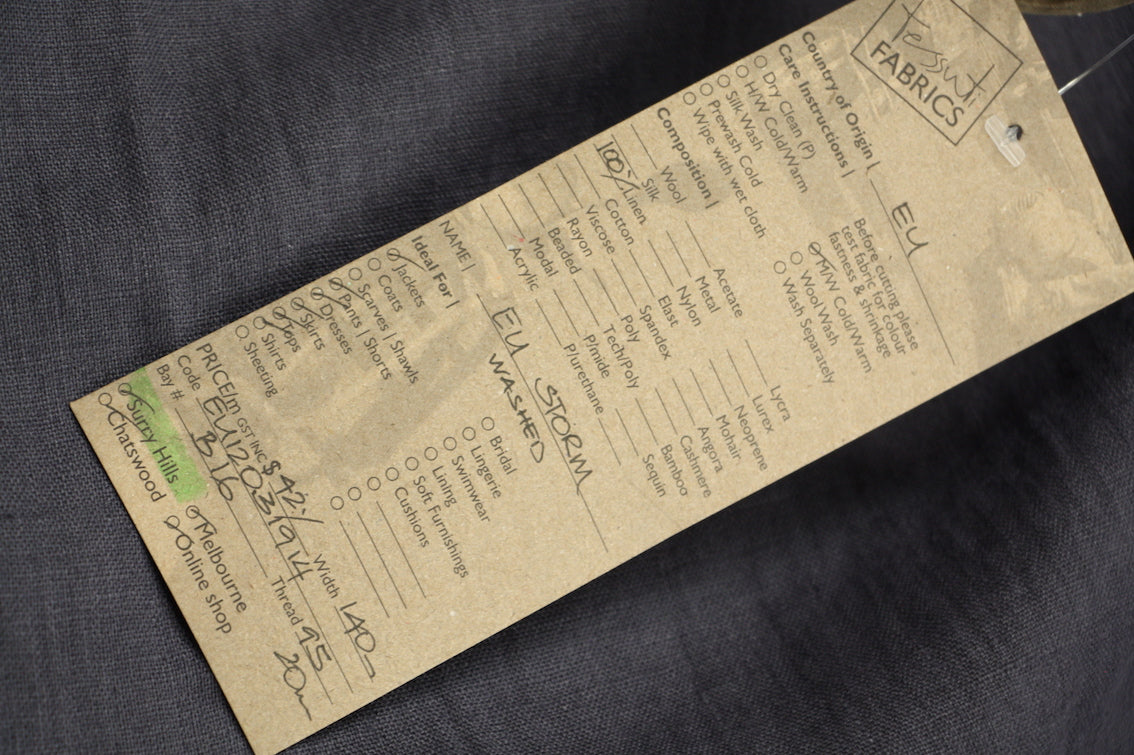 tessuti
FABRICS
Country of Origin | EU
Care Instructions |
Before cutting please
test fabric for colour
fastness & shrinkage
Dry Clean (P)
H/W Cold/Warm
Silk Wash
Prewash Cold
Wipe with wet cloth
M/W Cold/Warm
Wool Wash
Wash Separately
Composition |
Wool
Silk
100% Linen
Cotton
Viscose
Rayon
Beaded
Modal
Acrylic
Acetate
Metal
Nylon
Elast
Spandex
Poly
Tech/Poly
P/mide
P/urethane
Lycra
Lurex
Neoprene
Mohair
Angora
Cashmere
Bamboo
Sequin
NAME | EU STORM
WASHED
Ideal For |
Jackets
Coats
Scarves | Shawls
Pants | Shorts
Dresses
Skirts
Tops
Shirts
Sheeting
Bridal
Lingerie
Swimwear
Lining
Soft Furnishings
Cushions
PRICE/m GST INC $42/ Width 140
Code EU1203/914 Thread 95
Bay # B16 20m
Surry Hills
Chatswood
Melbourne
Online shop